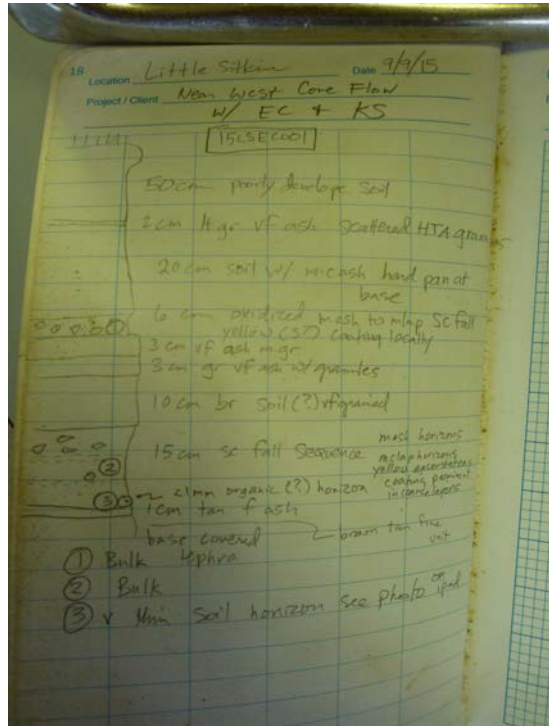 16 Location Little Sitkin Date 9/9/15
Project / Client Near West Cone Flow
w/ EC + KS
15LSEC001
50 cm poorly develope soil
2 cm lt gr vf ash scattered HTA
20 cm soil w/ m-c ash hard pan at
base
6 cm oxidized mash to mlap Sc fall
yellow (S?) coating locally
①
3 cm vf ash m gr
3 cm gr vf ash w/ granules
10 cm br soil (?) vf grained
15 cm sc fall sequence mash horizons
mlap horizons
yellow
coating
in coarse layers
②
③ ~ <1mm organic (?) horizon
1cm tan f ash
base covered brown tan fine
unit
① Bulk tephra
② Bulk
③ v thin soil horizon see photo on
ipad